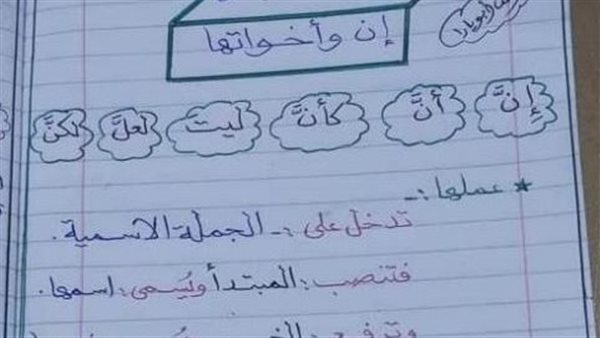 إن وأخواتها
إِنَّ أَنَّ كأنَّ ليتَ لعلَّ لكنَّ
* عملها :ـ
تدخل على :ـ الجملة الاسمية .
فتنصب : المبتدأ ويُسمى : اسمها .
وترفع : الخبر